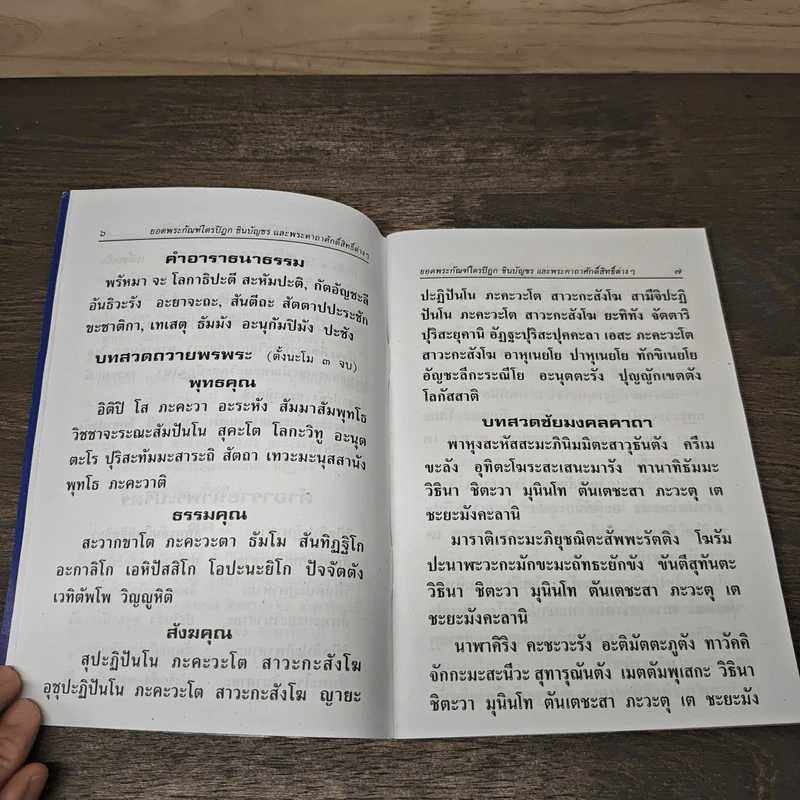 ๖ ยอดพระกัณฑ์ไตรปิฎก ชินบัญชร และพระคาถาศักดิ์สิทธิ์ต่างๆ
คำอาราธนาธรรม
พรัหมา จะ โลกาธิปะตี สะหัมปะติ, กัตอัญชะลี
อันธิวะรัง อะยาจะถะ, สันตีถะ สัตตาปปะระชัก
ขะชาติกา, เทเสตุ ธัมมัง อะนุกัมปิมัง ปะชัง
บทสวดถวายพรพระ (ตั้งนะโม ๓ จบ)
พุทธคุณ
อิติปิ โส ภะคะวา อะระหัง สัมมาสัมพุทโธ
วิชชาจะระณะสัมปันโน สุคะโต โลกะวิทู อะนุต
ตะโร ปุริสะทัมมะสาระถิ สัตถา เทวะมะนุสสานัง
พุทโธ ภะคะวาติ
ธรรมคุณ
สะวากขาโต ภะคะวะตา ธัมโม สันทิฏฐิโก
อะกาลิโก เอหิปัสสิโก โอปะนะยิโก ปัจจัตตัง
เวทิตัพโพ วิญญูหิติ
สังฆคุณ
สุปะฏิปันโน ภะคะวะโต สาวะกะสังโฆ
อุชุปะฏิปันโน ภะคะวะโต สาวะกะสังโฆ ญายะ
ยอดพระกัณฑ์ไตรปิฎก ชินบัญชร และพระคาถาศักดิ์สิทธิ์ต่างๆ ๗
ปะฏิปันโน ภะคะวะโต สาวะกะสังโฆ สามีจิปะฏิ
ปันโน ภะคะวะโต สาวะกะสังโฆ ยะทิทัง จัตตาริ
ปุริสะยุคานิ อัฏฐะปุริสะปุคคะลา เอสะ ภะคะวะโต
สาวะกะสังโฆ อาหุเนยโย ปาหุเนยโย ทักขิเนยโย
อัญชะลีกะระณีโย อะนุตตะรัง ปุญญักเขตตัง
โลกัสสาติ
บทสวดชัยมงคลคาถา
พาหุงสะหัสสะมะภินิมมิตะสาวุธันตัง ครีเม
ขะลัง อุทิตะโฆระสะเสนะมารัง ทานาทิธัมมะ
วิธินา ชิตะวา มุนินโท ตันเตชะสา ภะวะตุ เต
ชะยะมังคะลานิ
มาราติเรกะมะภิยุชฌิตะสัพพะรัตติง โฆรัม
ปะนาฬะวะกะมักขะมะถัทธะยักขัง ขันตีสุทันตะ
วิธินา ชิตะวา มุนินโท ตันเตชะสา ภะวะตุ เต
ชะยะมังคะลานิ
นาฬาคิริง คะชะวะรัง อะติมัตตะภูตัง ทาวัคคิ
จักกะมะสะนีวะ สุทารุณันตัง เมตตัมพุเสกะ วิธินา
ชิตะวา มุนินโท ตันเตชะสา ภะวะตุ เต ชะยะมัง